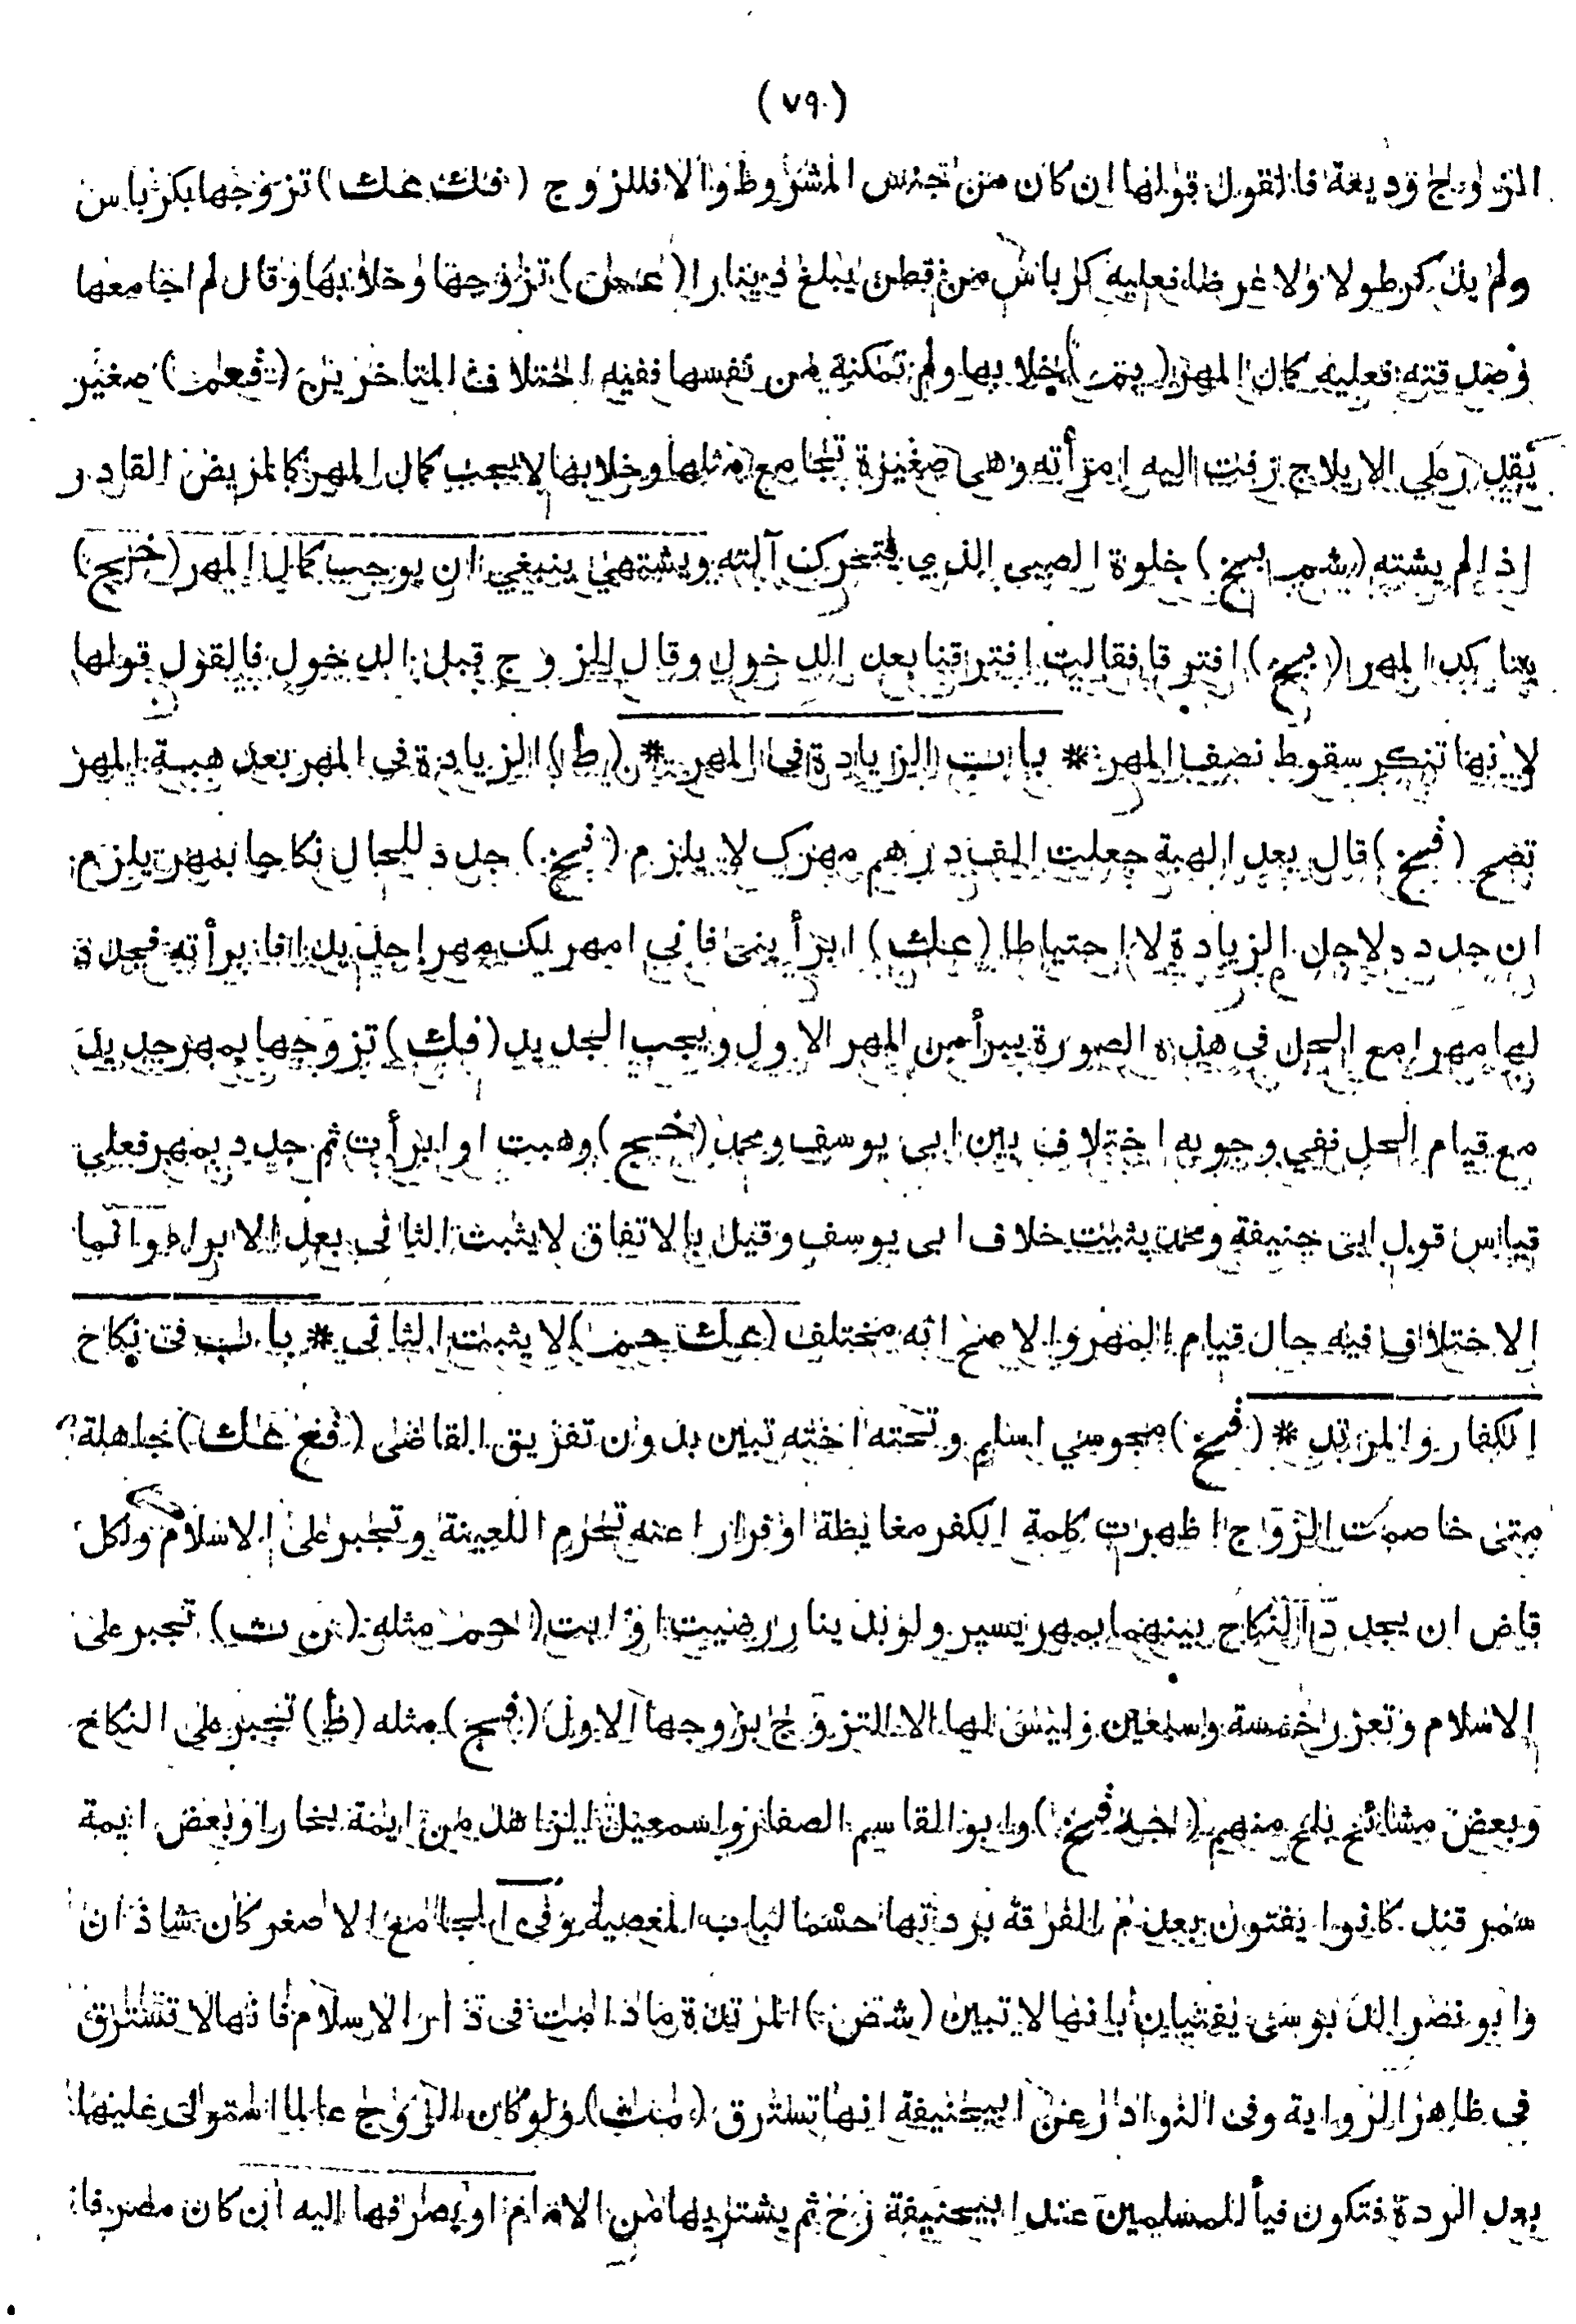 (٧٩)
الزواج وديعة فالقول قولها ان كان من جنس المشروط والا فللزوج (فك عك) تزوجها بكرباس
ولم يذكر طولا ولا عرضا فعليه كرباس من قطن يبلغ دينارا (عن) تزوجها وخلا بها وقال لم اجامعها
وصدقته فعليه كمال المهر (بم) خلا بها ولم تمكنه من نفسها ففيه اختلاف المتاخرين (فعم) صغير
يقدر على الايلاج زفت اليه امرأته وهى صغيرة تجامع مثلها وخلا بها لا يجب كمال المهر كالمريض القادر
اذا لم يشته (شم بخ) خلوة الصبى الذي تتحرك آلته ويشتهي ينبغي ان يوجب كمال المهر (خج)
يتاكد المهر (بخ) افترقا فقالت افترقنا بعد الدخول وقال الزوج قبل الدخول فالقول قولها
لانها تنكر سقوط نصف المهر * باب الزيادة فى المهر * (ط) الزيادة في المهر بعد هبة المهر
تصح (فخ) قال بعد الهبة جعلت الف درهم مهرك لا يلزم (فخ) جدد للحال نكاحا بمهر يلزم
ان جدده لاجل الزيادة لا احتياطا (عك) ابرأينى فاني امهر لك مهرا جديدا فابرأته فجدد
لها مهرا مع الحل في هذه الصورة يبرأ من المهر الاول ويجب الجديد (فك) تزوجها بمهر جديد
مع قيام الحل نفي وجوبه اختلاف بين ابى يوسف ومحمد (خج) وهبت او ابرأت ثم جدد بمهر فعلي
قياس قول ابى حنيفة ومحمد يثبت خلاف ابى يوسف وقيل بالاتفاق لا يثبت الثانى بعد الابراء وانما
الاختلاف فيه حال قيام المهر والاصح انه مختلف (عك حم) لا يثبت الثاني * باب فى نكاح
الكفار والمرتد * (فخ) مجوسي اسلم وتحته اخته تبين بدون تفريق القاضى (فع عك) جاهلة
متى خاصمت الزوج اظهرت كلمة الكفر مغايظة او فرارا عنه تحرم اللعينة وتجبر على الاسلام ولكل
قاض ان يجدد النكاح بينهما بمهر يسير ولو بدينار رضيت او ابت (حم) مثله (ن ث) تجبر على
الاسلام وتعزر خمسة وسبعين وليس لها الا التزوج بزوجها الاول (فج) مثله (ظ) تجبر على النكاح
وبعض مشائخ بلخ منهم (فخ) وابو القاسم الصفار واسمعيل الزاهد من ايمة بخارا وبعض ايمة
سمرقند كانوا يفتون بعدم الفرقة بردتها حسما لباب المعصية وفى الجامع الاصغر كان شاذان
وابو نصر الدبوسى يفتيان بانها لا تبين (شص) المرتدة ما دامت فى دار الاسلام فانها لا تسترق
في ظاهر الرواية وفى النوادر عن ابيحنيفة انها تسترق (مث) ولو كان الزوج عالما استولى عليها
بعد الردة فتكون فيأ للمسلمين عند ابيحنيفة رح ثم يشتريها من الامام او يصرفها اليه ان كان مصرفا